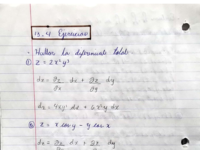 13.4 Ejercicios
- Hallar la diferencial total.
① z = 2x²y³
dz = ∂z/∂x dx + ∂z/∂y dy
dz = 4xy³ dx + 6x²y² dy
③ z = x cos y - y cos x
dz = ∂z/∂x dx + ∂z/∂y dy